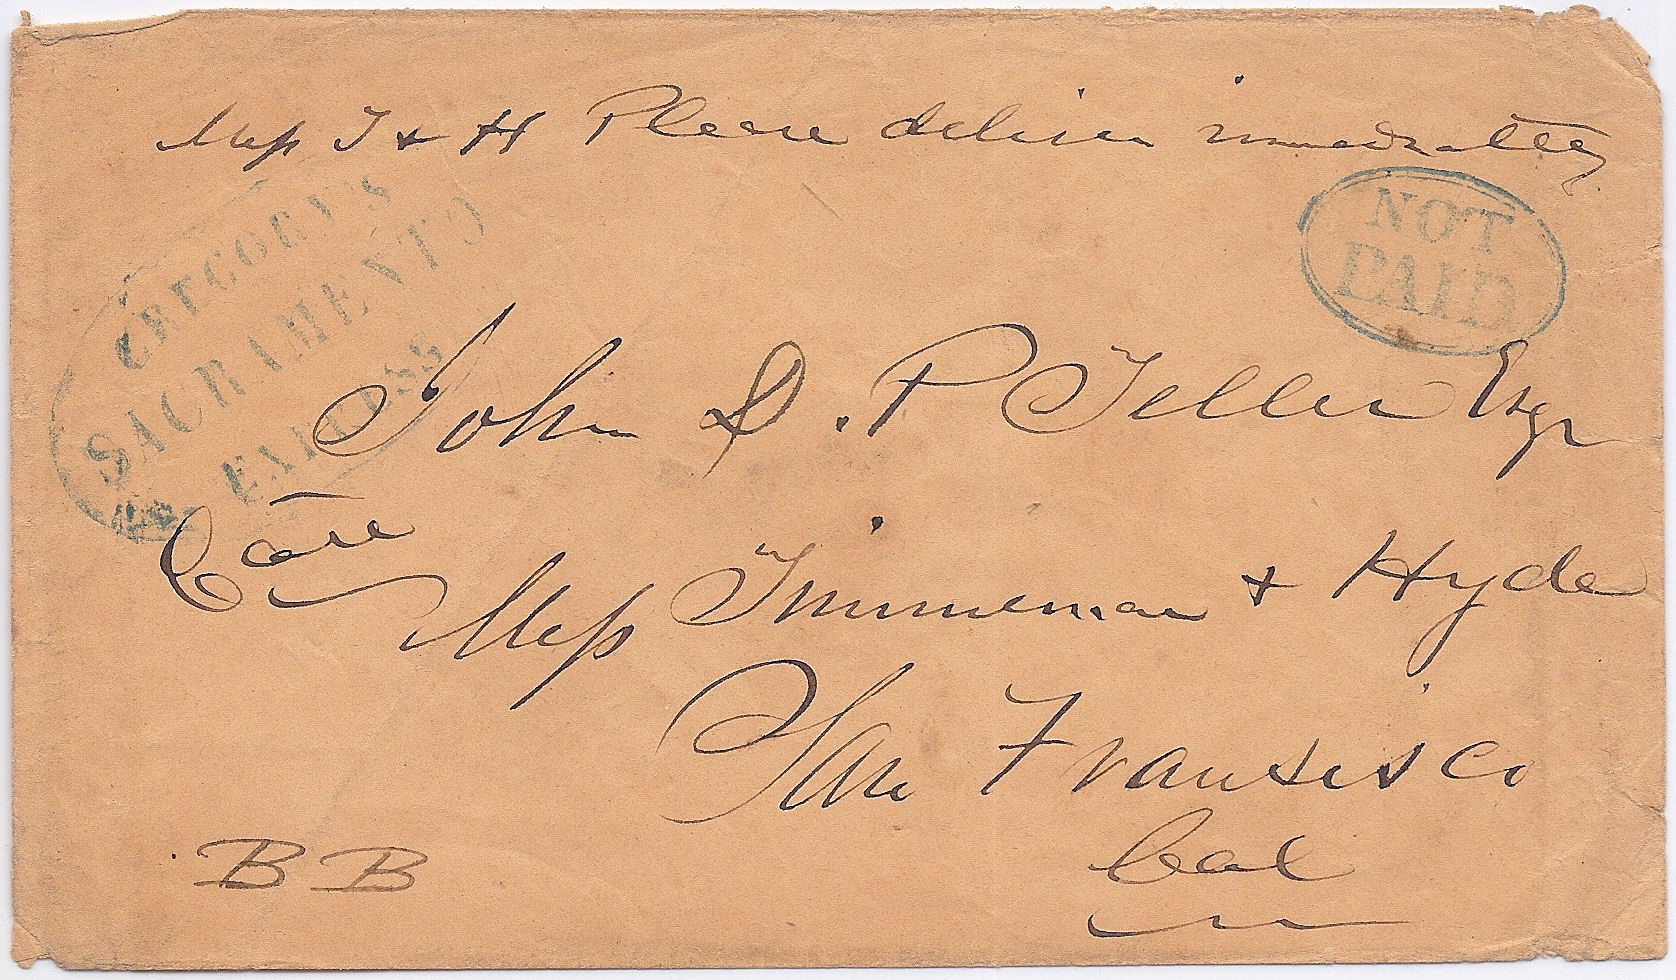 Mess T & H Please deliver immediately
GREGORY'S
SACRAMENTO
EXPRESS
NOT
PAID
John D. P Teller Esqr
Care
Mess Timmerman & Hyde
San Fransisco
Cal
B B